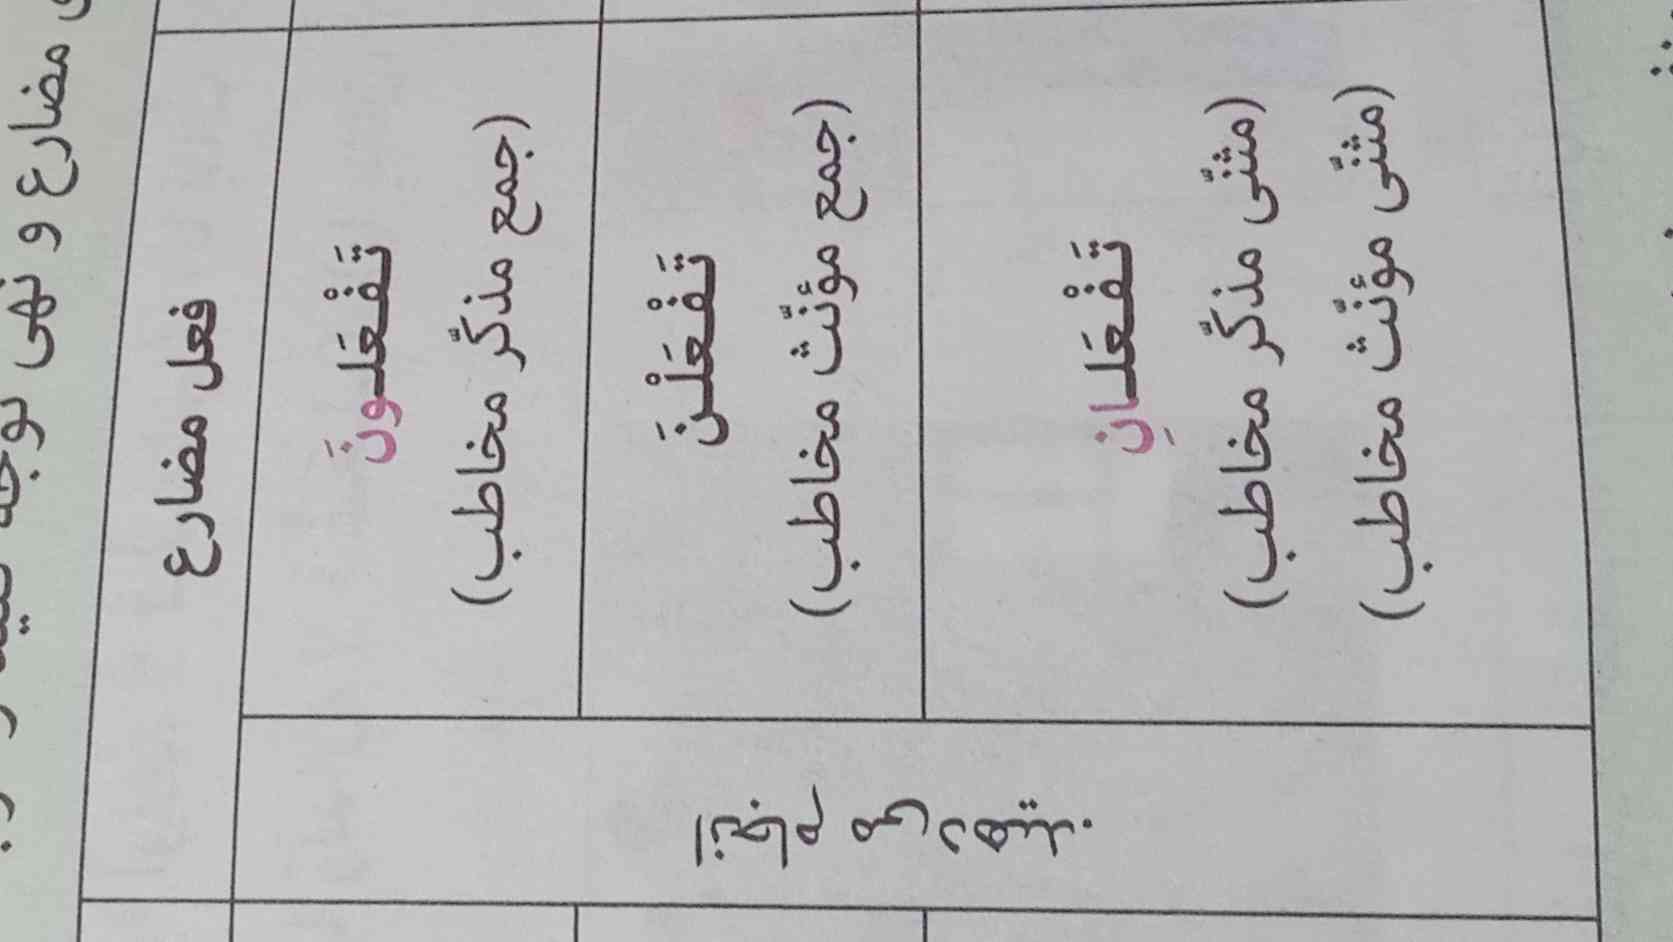 مضارع و نهی توجه
فعل مضارع
تَفْعَلونَ
(جمع مذکّر مخاطب)
تَفْعَلْنَ
(جمع مؤنّث مخاطب)
تَفْعَلانِ
(مثنّی مذکّر مخاطب)
(مثنّی مؤنّث مخاطب)
انجام می‌دهید.